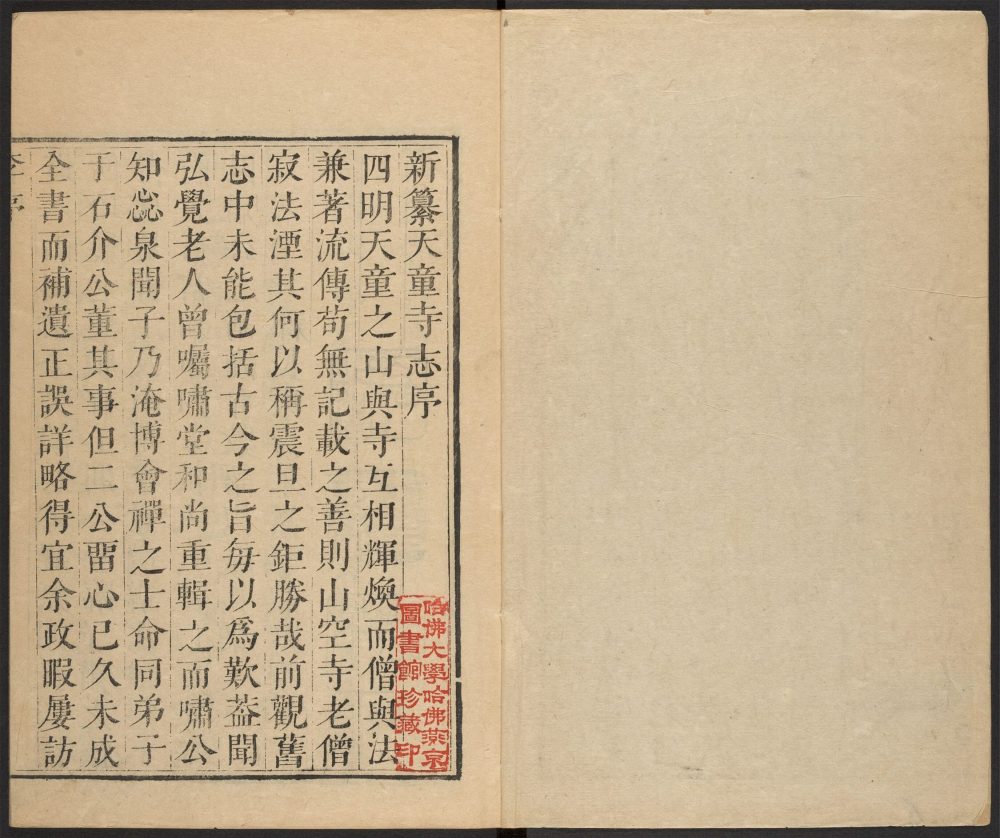 新纂天童寺志序
四明天童之山與寺互相輝煥而僧與法
兼著流傳苟無記載之善則山空寺老僧
寂法湮其何以稱震旦之鉅勝哉前觀舊
志中未能包括古今之旨每以爲歎葢聞
弘覺老人曾囑嘯堂和尚重輯之而嘯公
知忞泉聞子乃淹博會禪之士命同弟子
于石介公董其事但二公畱心已久未成
全書而補遺正誤詳略得宜余政暇屢訪
哈佛大學哈佛燕京
圖書館珍藏印